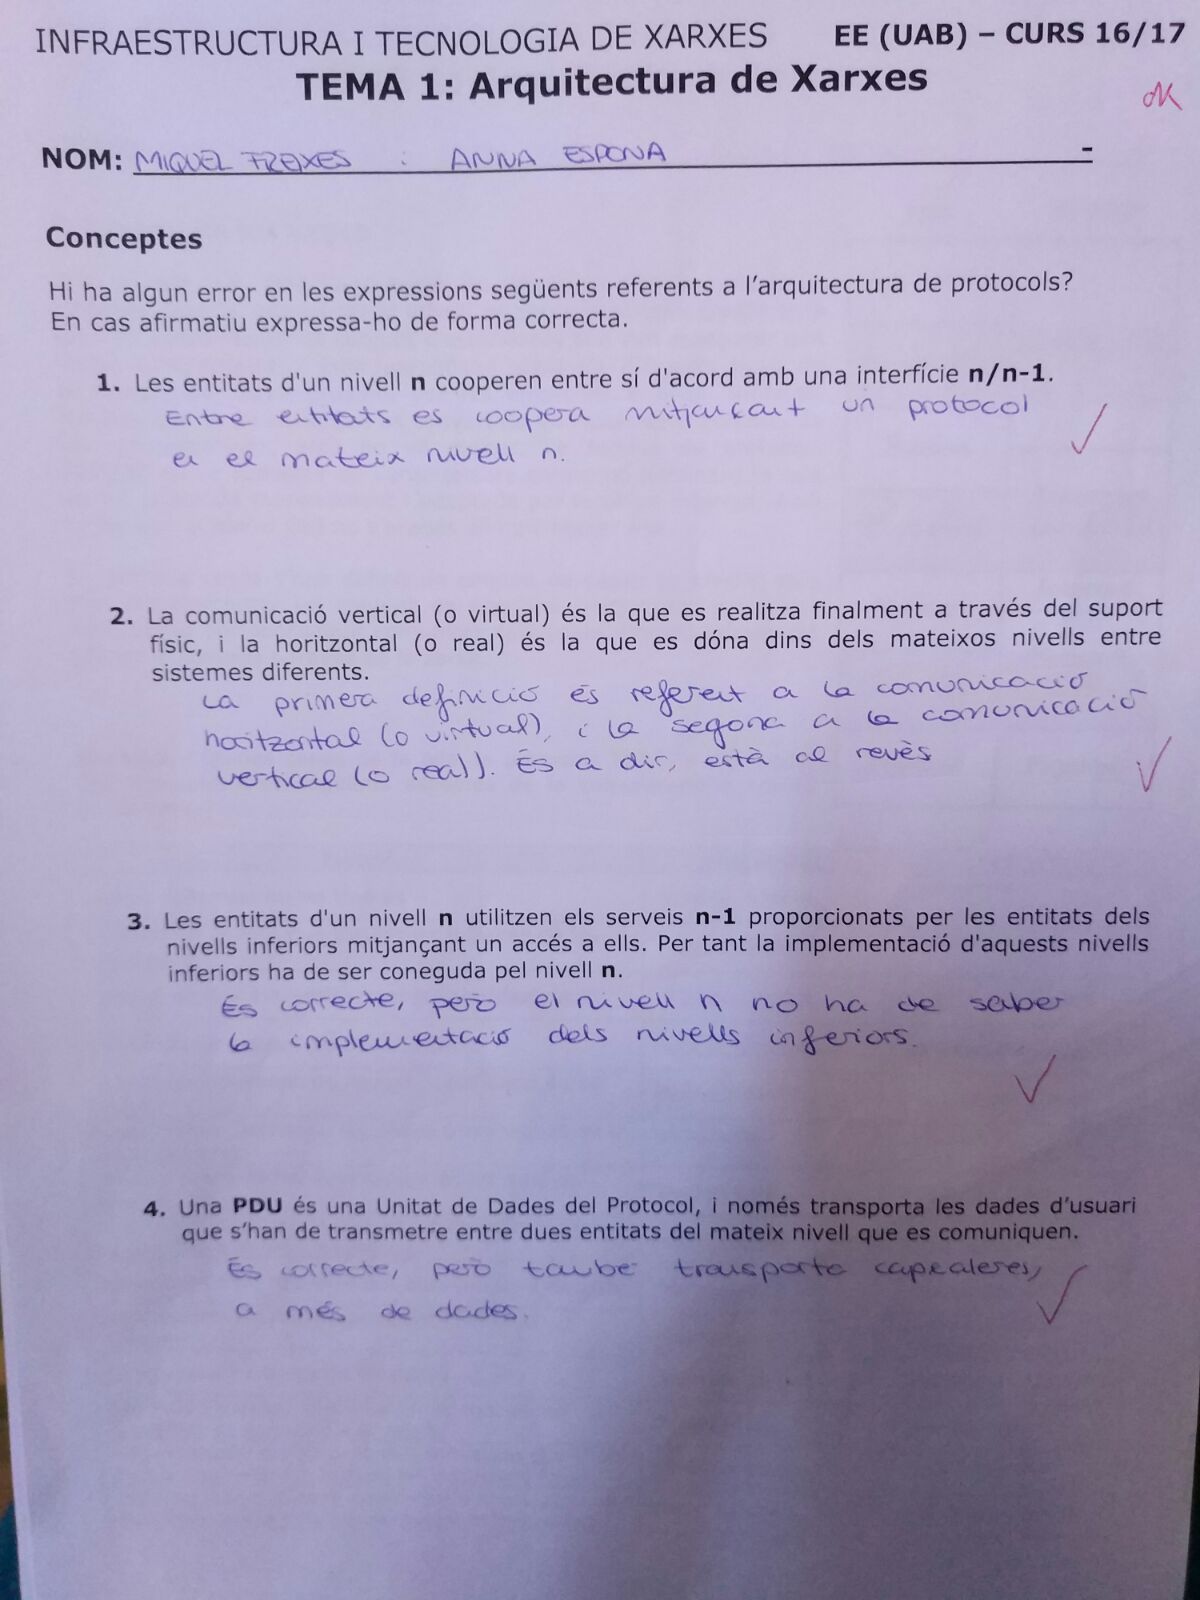 INFRAESTRUCTURA I TECNOLOGIA DE XARXES EE (UAB) – CURS 16/17
TEMA 1: Arquitectura de Xarxes
OK
NOM: MIQUEL FREIXES : ANNA ESPONA -
Conceptes
Hi ha algun error en les expressions següents referents a l’arquitectura de protocols?
En cas afirmatiu expressa-ho de forma correcta.
1. Les entitats d'un nivell n cooperen entre sí d'acord amb una interfície n/n-1.
Entre entitats es coopera mitjançant un protocol
en el mateix nivell n.
2. La comunicació vertical (o virtual) és la que es realitza finalment a través del suport
físic, i la horitzontal (o real) és la que es dóna dins dels mateixos nivells entre
sistemes diferents.
La primera definició és referent a la comunicació
horitzontal (o virtual), i la segona a la comunicació
vertical (o real). És a dir, està al revès
3. Les entitats d'un nivell n utilitzen els serveis n-1 proporcionats per les entitats dels
nivells inferiors mitjançant un accés a ells. Per tant la implementació d'aquests nivells
inferiors ha de ser coneguda pel nivell n.
És correcte, però el nivell n no ha de saber
la implementació dels nivells inferiors.
4. Una PDU és una Unitat de Dades del Protocol, i només transporta les dades d’usuari
que s’han de transmetre entre dues entitats del mateix nivell que es comuniquen.
És correcte, però també transporta capçaleres,
a més de dades.